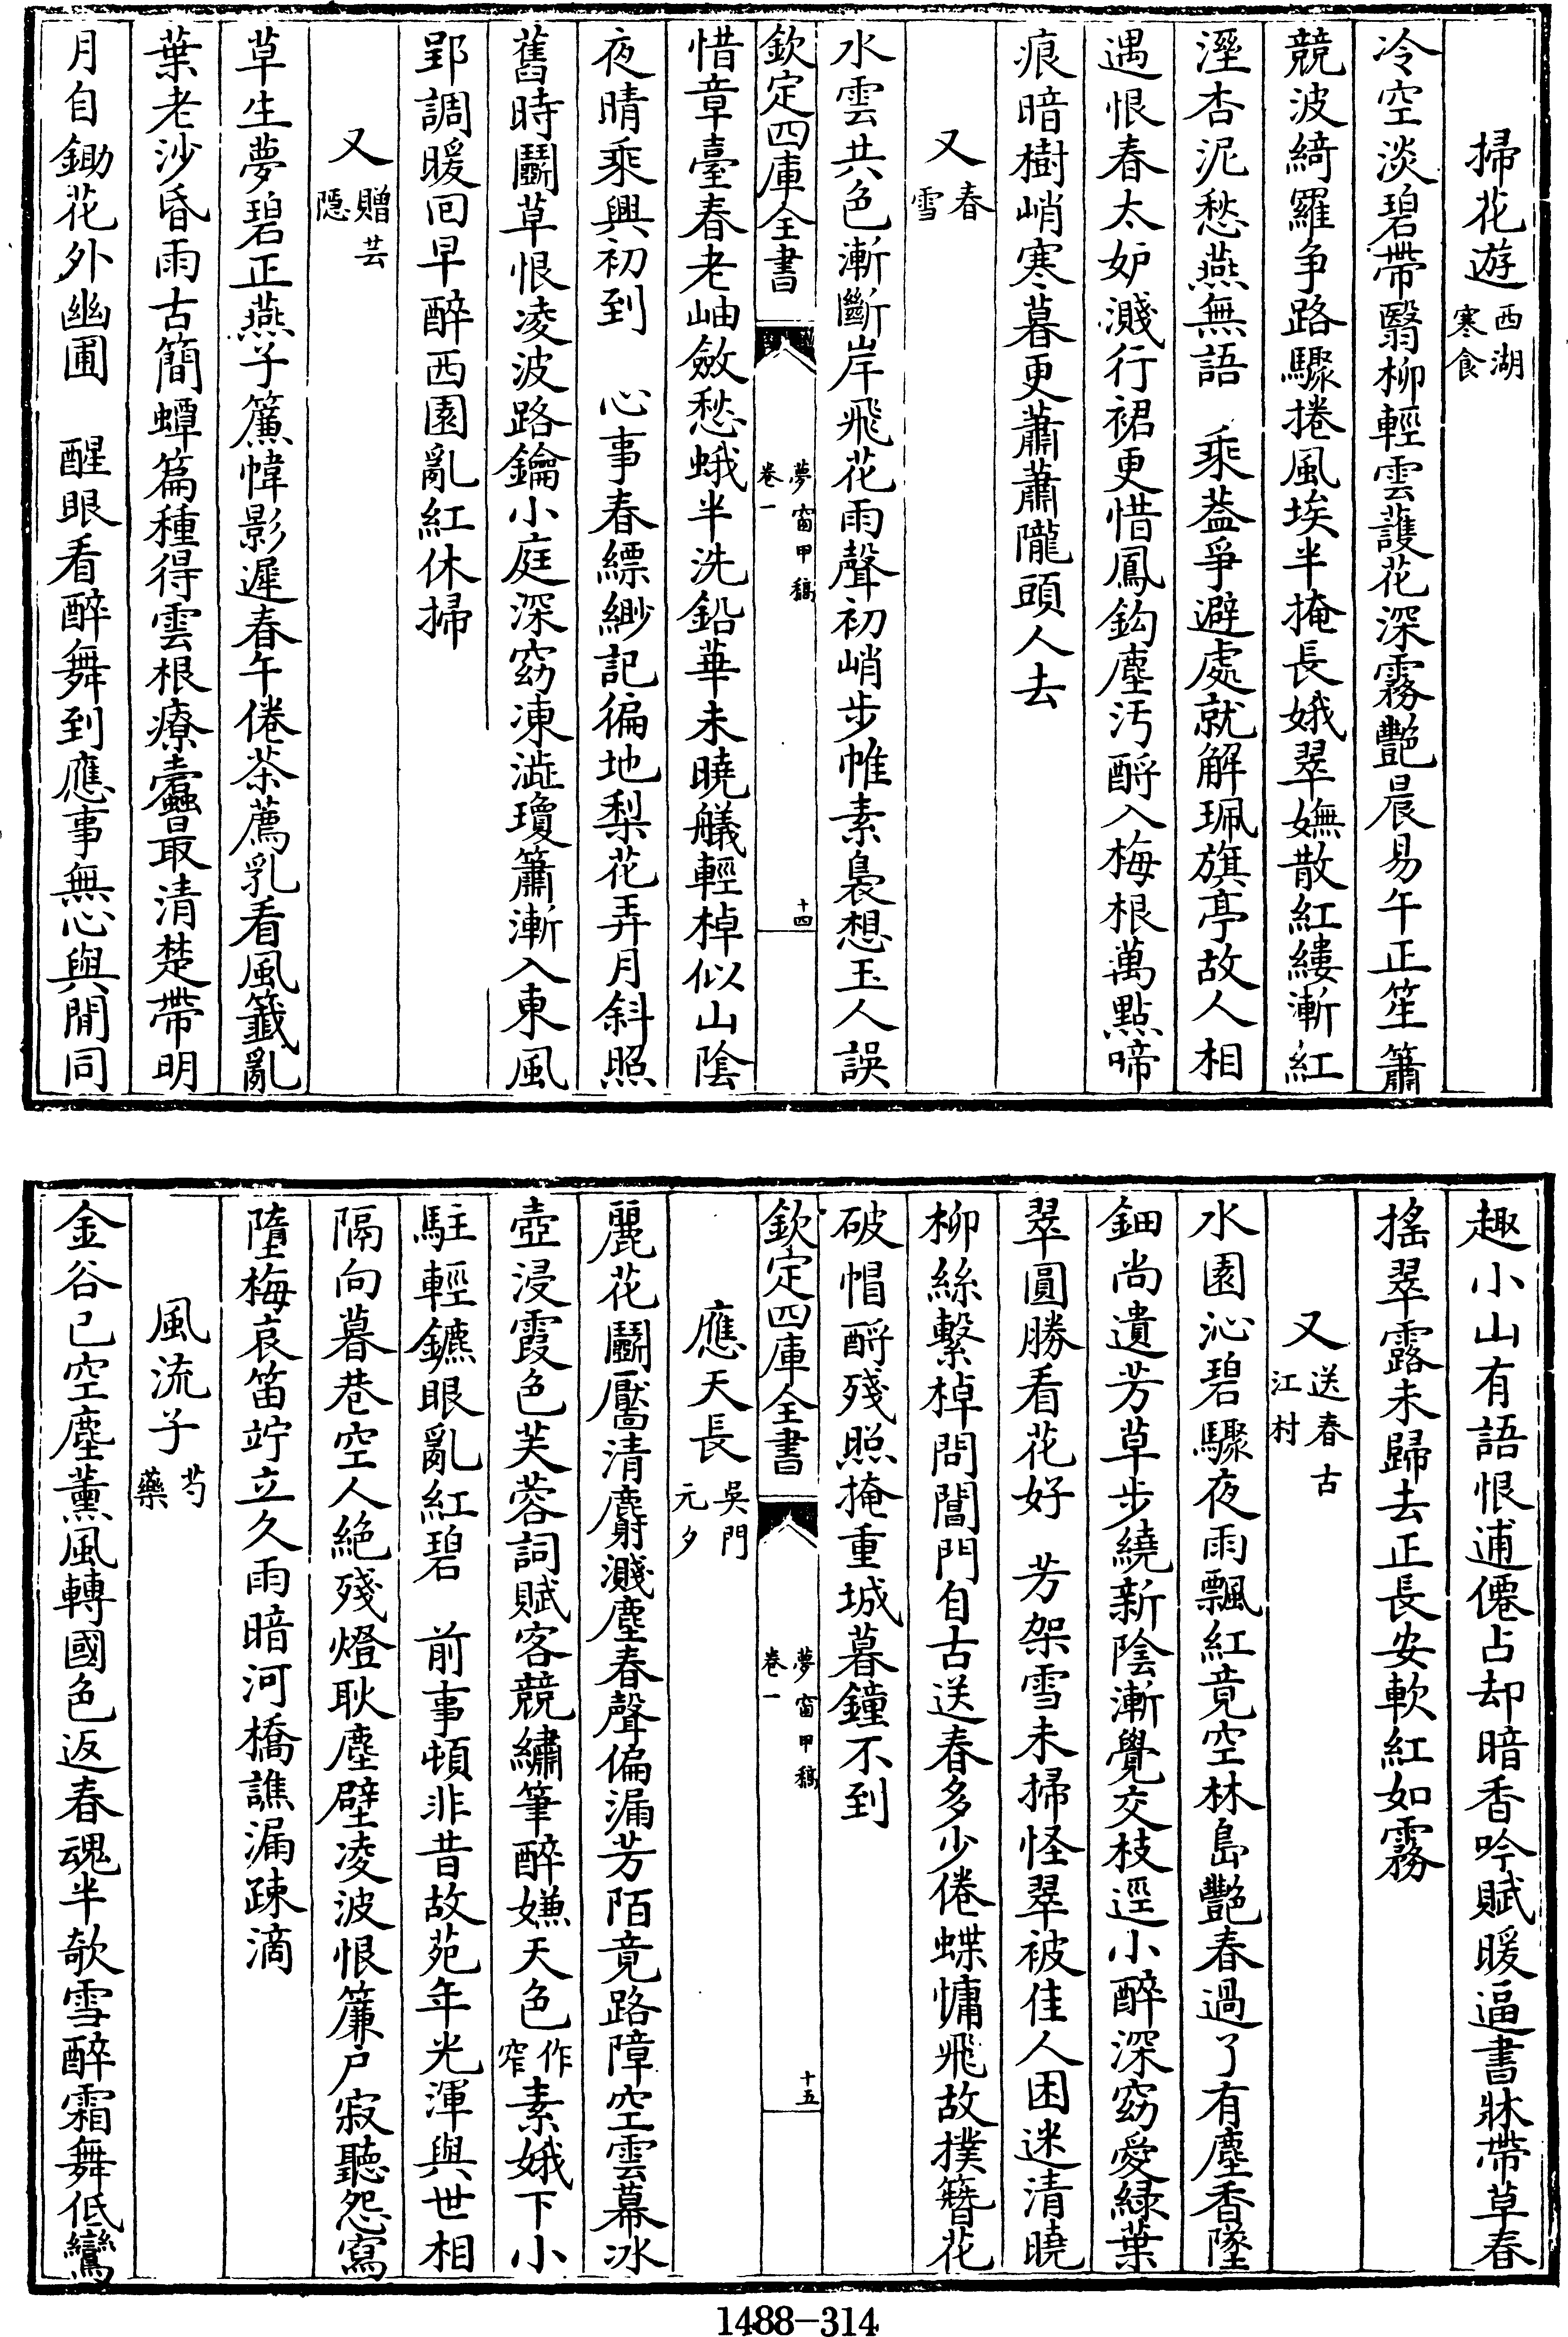 掃花遊西湖寒食
冷空淡碧帶翳柳輕雲護花深霧艷晨易午正笙簫
競波綺羅争路驟捲風埃半掩長娥翠嫵散紅縷漸紅
溼杏泥愁燕無語　乘葢爭避處就解珮旗亭故人相
遇恨春太妒濺行裙更惜鳳鈎塵汚酹入梅根萬點啼
痕暗樹峭寒暮更蕭蕭隴頭人去
又春雪
水雲共色漸斷岸飛花雨聲初峭步帷素裊想玉人誤
欽定四庫全書　夢窗甲稿卷一　十四
惜章臺春老岫斂愁蛾半洗鉛華未曉艤輕棹似山陰
夜晴乘興初到　心事春縹緲記徧地梨花弄月斜照
舊時鬭草恨凌波路鑰小庭深窈凍澁瓊簫漸入東風
郢調暖回早醉西園亂紅休掃
又贈芸隱
草生夢碧正燕子簾幃影遲春午倦茶薦乳看風籤亂
葉老沙昏雨古簡蟫篇種得雲根療蠹最清楚帶明
月自鋤花外幽圃　醒眼看醉舞到應事無心與閒同
趣小山有語恨逋僊占却暗香吟賦暖逼書牀帶草春
搖翠露未歸去正長安軟紅如霧
又送春古江村
水園沁碧驟夜雨飄紅竟空林島艷春過了有塵香墜
鈿尚遺芳草步繞新陰漸覺交枝逕小醉深窈愛緑葉
翠圓勝看花好　芳架雪未掃怪翠被佳人困迷清曉
柳絲繫棹問閶門自古送春多少倦蝶慵飛故撲簪花
破帽酹殘照掩重城暮鐘不到
欽定四庫全書　夢窗甲稿卷一　十五
應天長吳門元夕
麗花鬭靨清麝濺塵春聲偏漏芳陌竟路障空雲幕冰
壺浸霞色芙蓉詞賦客競繡筆醉嫌天色作窄素娥下小
駐輕鑣眼亂紅碧　前事頓非昔故苑年光渾與世相
隔向暮巷空人絶殘燈耿塵壁凌波恨簾户寂聽怨寫
墮梅哀笛竚立久雨暗河橋譙漏疎滴
風流子芍藥
金谷已空塵薰風轉國色返春魂半欹雪醉霜舞低鸞
1488–314